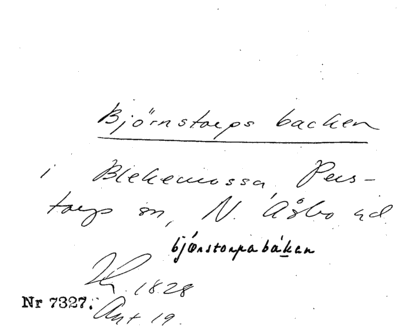 Björnstorps backen
i Blekemossa, Pers-
torps sn, N. Åsbo hd
bjö́rnstorpabáken
1828
Nr 7327.
Ant 19.